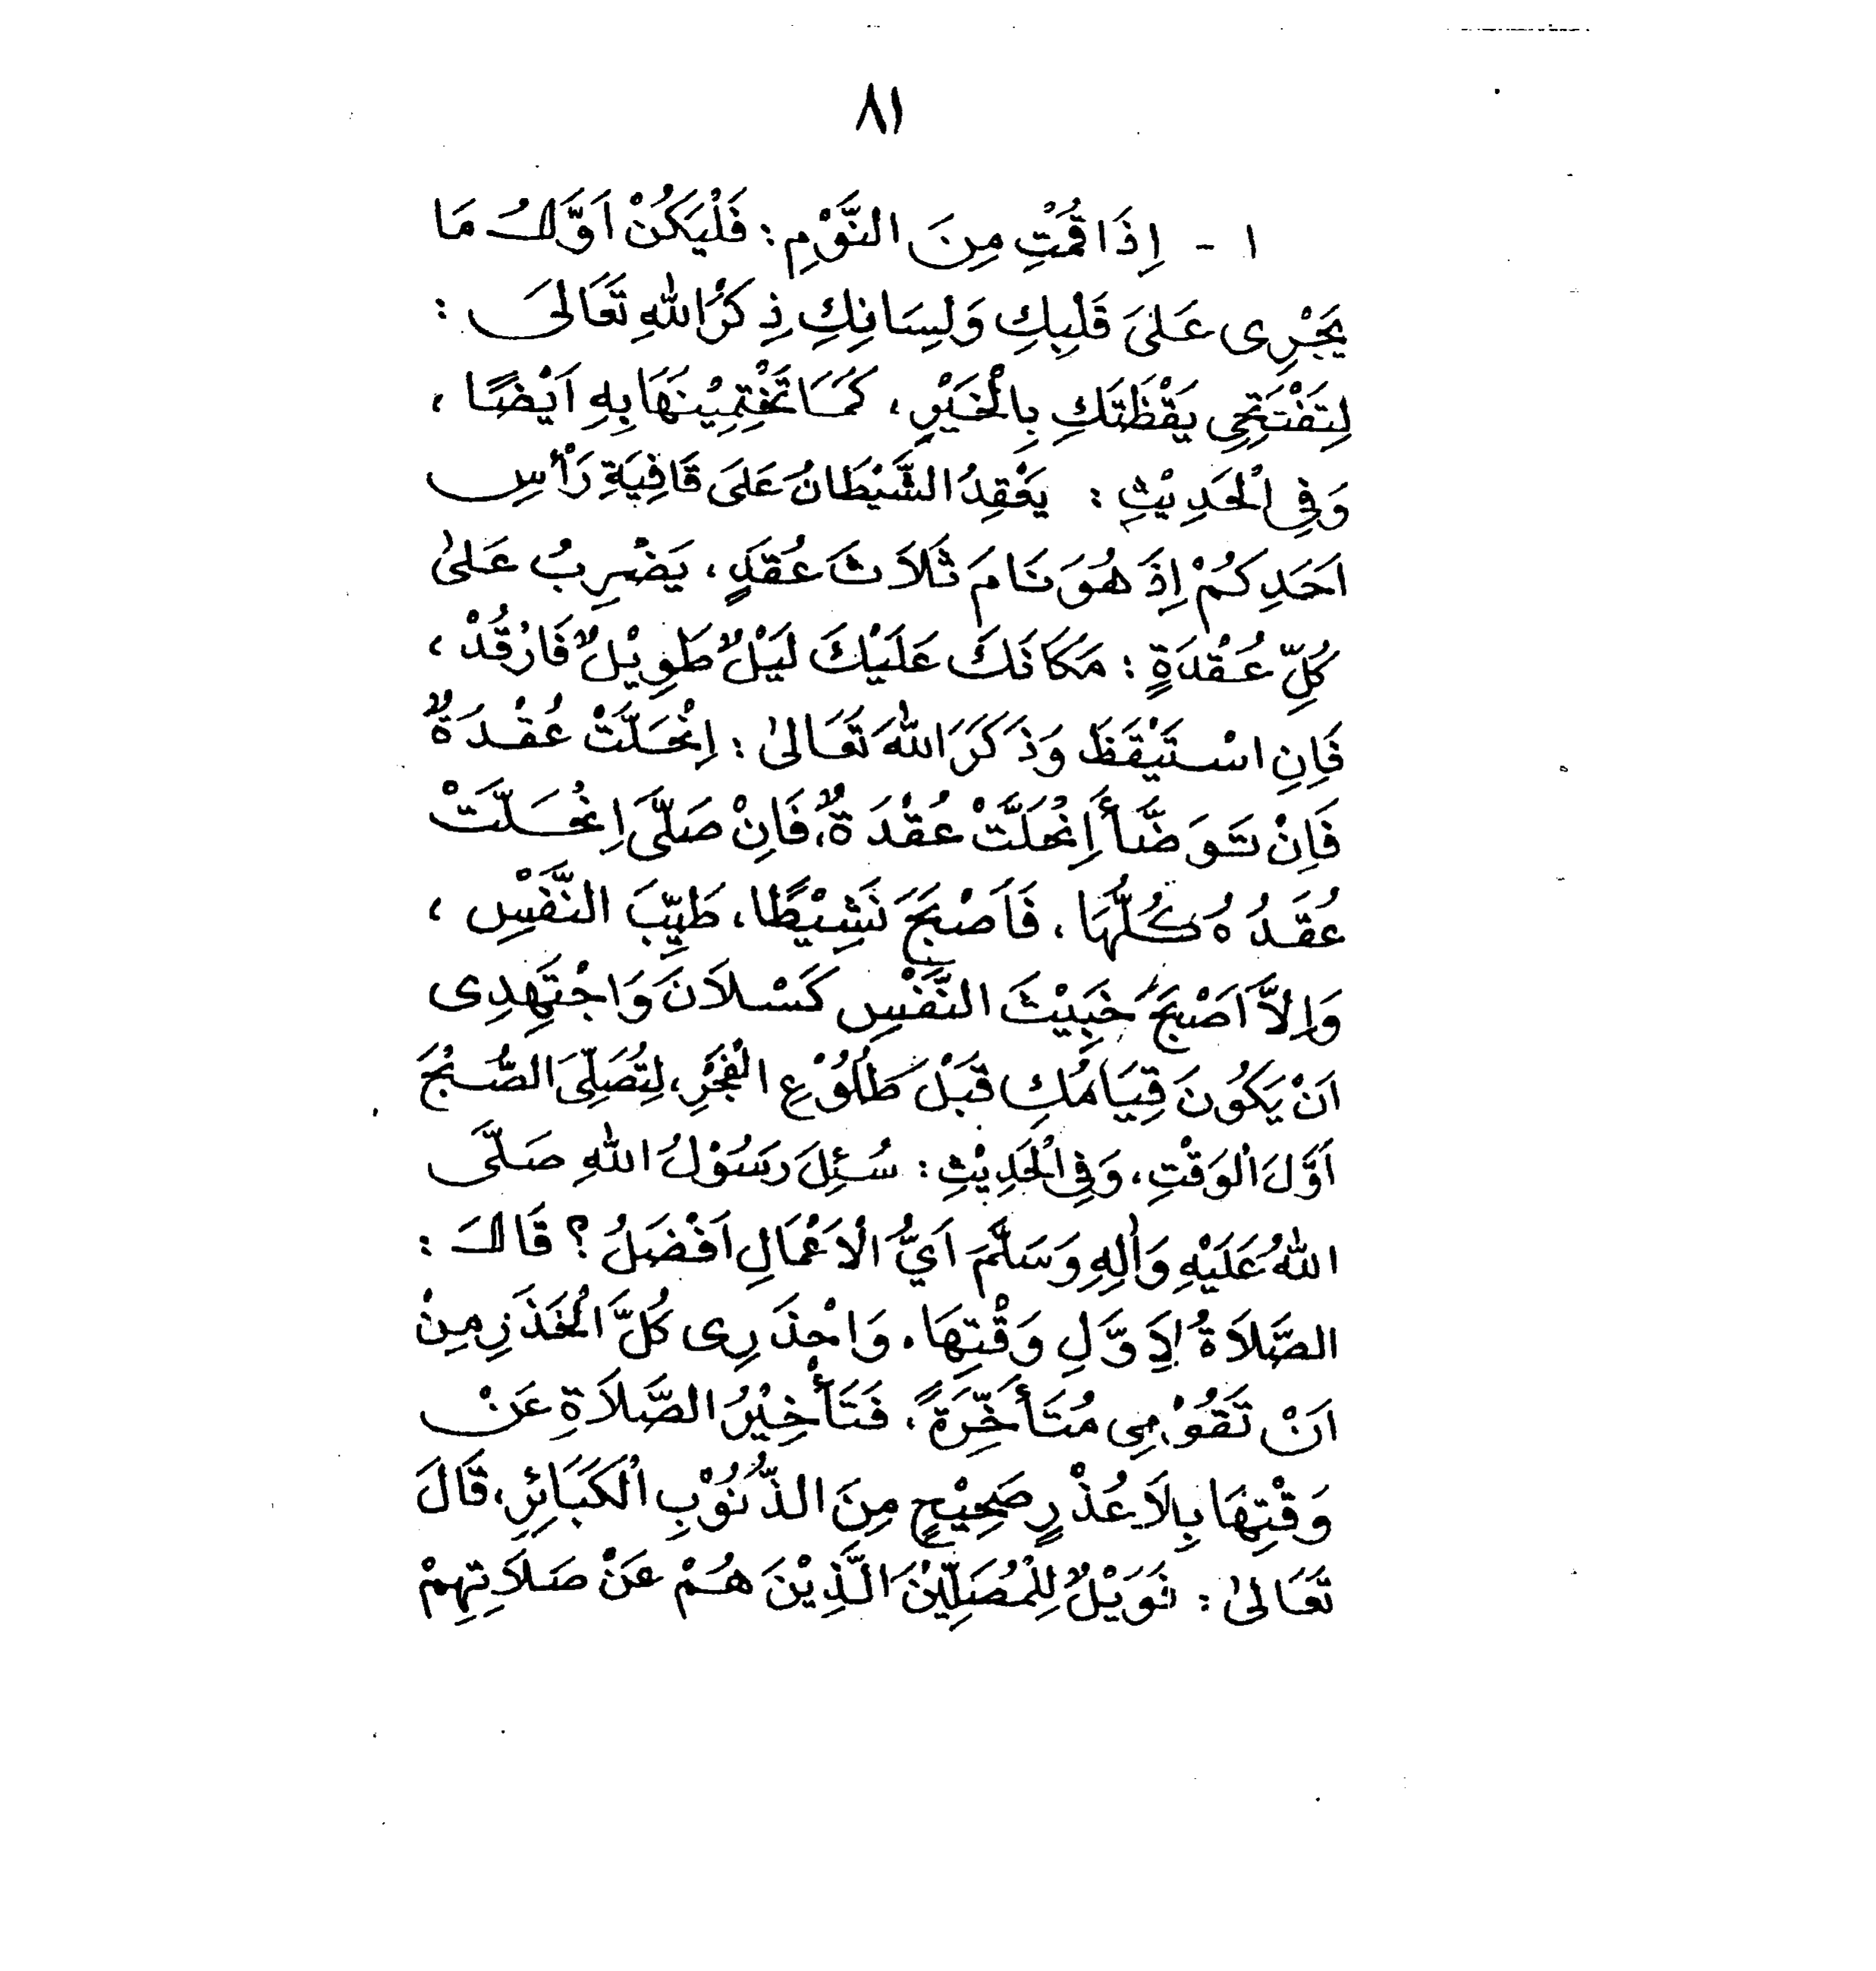 ٨١
١ - اِذَا قُمْتِ مِنَ النَّوْمِ : فَلْيَكُنْ اَوَّلُ مَا
يَجْرِى عَلىَ قَلْبِكِ وَلِسَانِكِ ذِكْرُ اللهِ تَعَالىَ :
لِتَفْتَتِحِى يَقْظَتَكِ بِالْخَيْرِ ، كَمَا تَخْتِمِيْنَهَا بِهِ اَيْضًا ،
وَفِى الْحَدِيْثِ : يَعْقِدُ الشَّيْطَانُ عَلىَ قَافِيَةِ رَأْسِ
اَحَدِكُمْ اِذَ هُوَ نَامَ ثَلَاثَ عُقَدٍ ، يَضْرِبُ عَلىٰ
كُلِّ عُقْدَةٍ : مَكَانَكَ عَلَيْكَ لَيْلٌ طَوِيْلٌ فَارْقُدْ ،
فَاِنِ اسْتَيْقَظَ وَذَكَرَ اللهَ تَعَالىٰ : اِنْحَلَّتْ عُقْدَةٌ
فَاِنْ تَوَضَّأَ اِنْحَلَّتْ عُقْدَةٌ ، فَاِنْ صَلَّى اِنْحَلَّتْ
عُقَدُهُ كُلُّهَا ، فَاَصْبَحَ نَشِيْطًا ، طَيِّبَ النَّفْسِ ،
وَاِلاَّ اَصْبَحَ خَبِيْثَ النَّفْسِ كَسْلاَنَ وَاجْتَهِدِى
اَنْ يَكُوْنَ قِيَامُكِ قَبْلَ طُلُوْعِ الْفَجْرِ ، لِتُصَلِّىَ الصُّبْحَ
اَوَّلَ الْوَقْتِ ، وَفِى الْحَدِيْثِ : سُئِلَ رَسُوْلُ اللهِ صَلَّى
اللهُ عَلَيْهِ وَاٰلِهِ وَسَلَّمَ اَيُّ الْاَعْمَالِ اَفْضَلُ ؟ قَالَ :
الصَّلاَةُ لِاَوَّلِ وَقْتِهَا . وَاحْذَرِى كُلَّ الْحَذَرِ مِنْ
اَنْ تَقُوْمِى مُتَأَخِّرَةً ، فَتَأْخِيْرُ الصَّلاَةِ عَنْ
وَقْتِهَا بِلاَ عُذْرٍ صَحِيْحٍ مِنَ الذُّنُوْبِ الْكَبَائِرِ ، قَالَ
تَعَالىٰ : فَوَيْلٌ لِلْمُصَلِّيْنَ الَّذِيْنَ هُمْ عَنْ صَلاَتِهِمْ